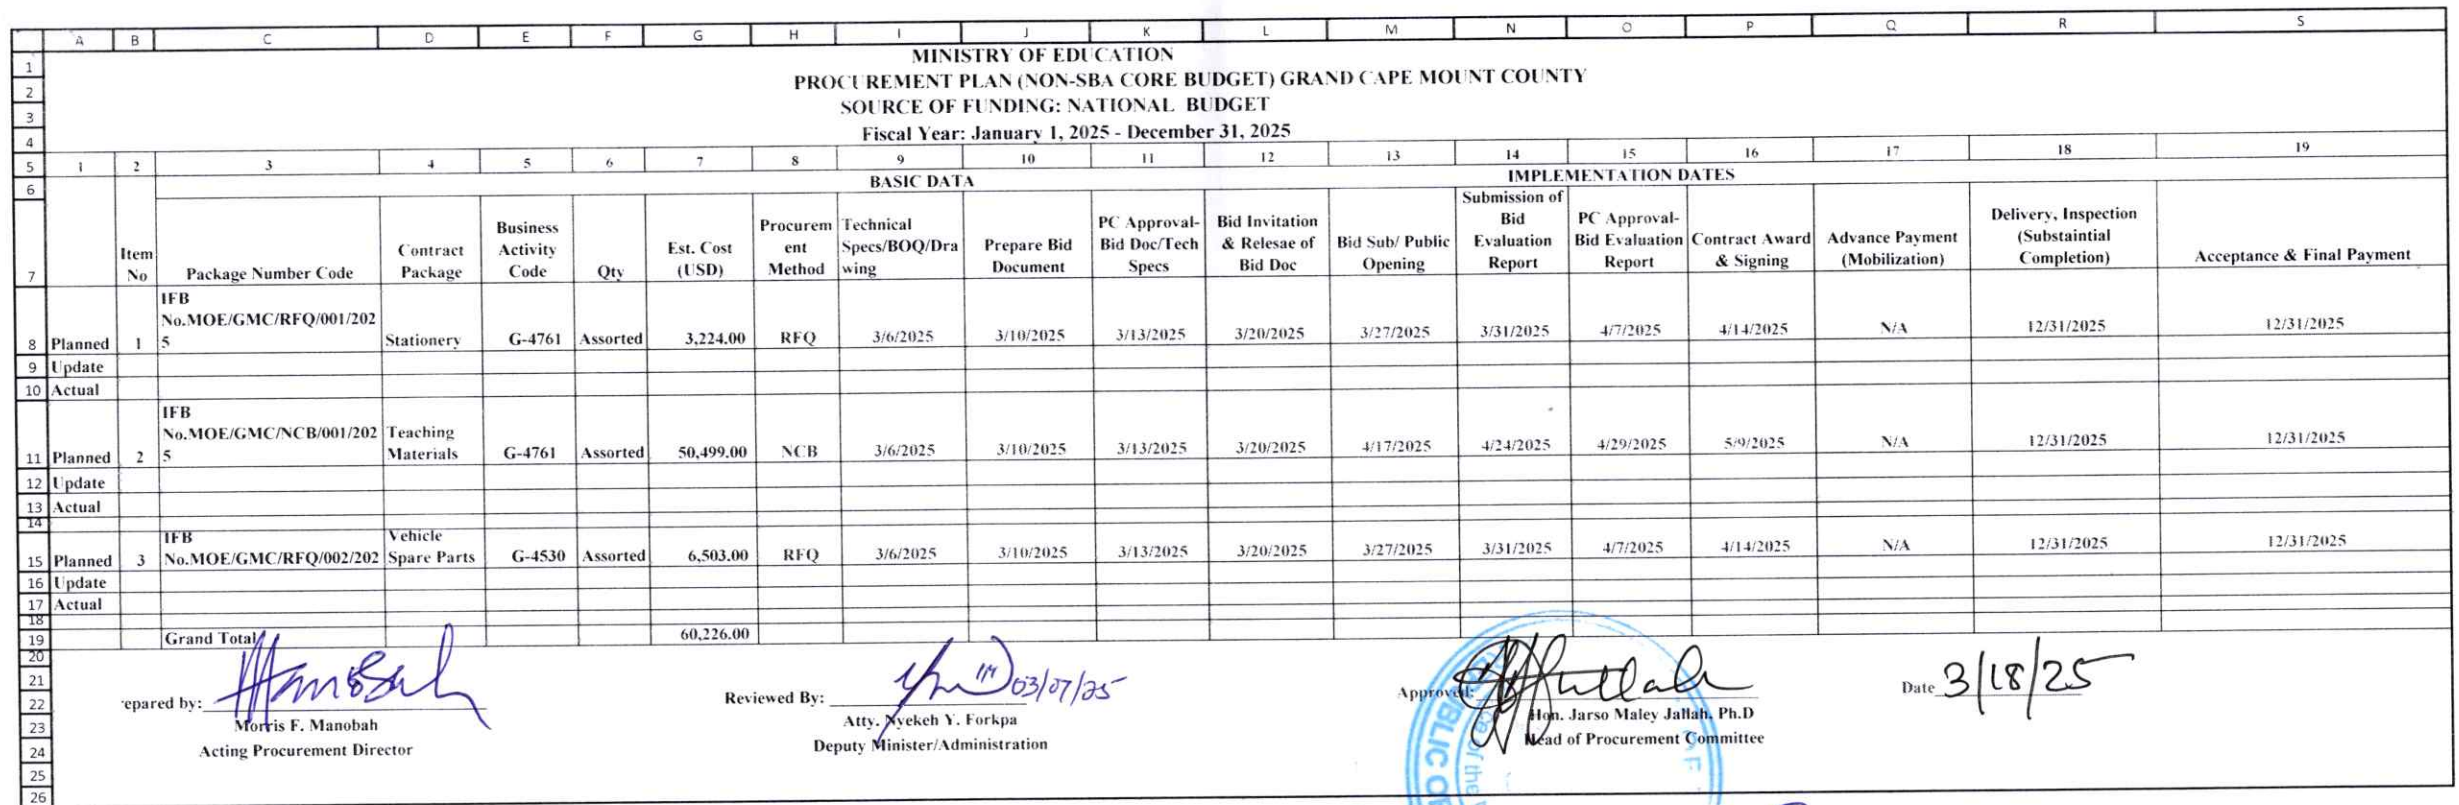 A B C D E F G H I J K L M N O P Q R S
1 MINISTRY OF EDUCATION
2 PROCUREMENT PLAN (NON-SBA CORE BUDGET) GRAND CAPE MOUNT COUNTY
3 SOURCE OF FUNDING: NATIONAL BUDGET
4 Fiscal Year: January 1, 2025 - December 31, 2025
5 1 2 3 4 5 6 7 8 9 10 11 12 13 14 15 16 17 18 19
6 BASIC DATA IMPLEMENTATION DATES
7 Item No Package Number Code Contract Package Business Activity Code Qty Est. Cost (USD) Procurem ent Method Technical Specs/BOQ/Dra wing Prepare Bid Document PC Approval- Bid Doc/Tech Specs Bid Invitation & Relesae of Bid Doc Bid Sub/ Public Opening Submission of Bid Evaluation Report PC Approval- Bid Evaluation Report Contract Award & Signing Advance Payment (Mobilization) Delivery, Inspection (Substaintial Completion) Acceptance & Final Payment
8 Planned 1 IFB No.MOE/GMC/RFQ/001/202 5 Stationery G-4761 Assorted 3,224.00 RFQ 3/6/2025 3/10/2025 3/13/2025 3/20/2025 3/27/2025 3/31/2025 4/7/2025 4/14/2025 N/A 12/31/2025 12/31/2025
9 Update
10 Actual
11 Planned 2 IFB No.MOE/GMC/NCB/001/202 5 Teaching Materials G-4761 Assorted 50,499.00 NCB 3/6/2025 3/10/2025 3/13/2025 3/20/2025 4/17/2025 4/24/2025 4/29/2025 5/9/2025 N/A 12/31/2025 12/31/2025
12 Update
13 Actual
14
15 Planned 3 IFB No.MOE/GMC/RFQ/002/202 Vehicle Spare Parts G-4530 Assorted 6,503.00 RFQ 3/6/2025 3/10/2025 3/13/2025 3/20/2025 3/27/2025 3/31/2025 4/7/2025 4/14/2025 N/A 12/31/2025 12/31/2025
16 Update
17 Actual
18
19 Grand Total 60,226.00
20
21
22 epared by: Reviewed By: 03/07/25 Approved: Date 3/18/25
23 Morris F. Manobah Atty. Nyekeh Y. Forkpa Hon. Jarso Maley Jallah, Ph.D
24 Acting Procurement Director Deputy Minister/Administration Head of Procurement Committee
25
26